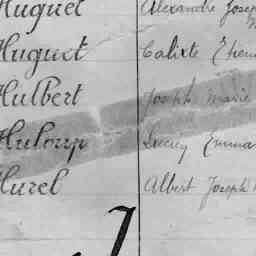 Huguet Alexandre Josep
Huguet Calixte
Hulbert Joseph Marie
Huloup Emma
Hurel Albert Joseph
J